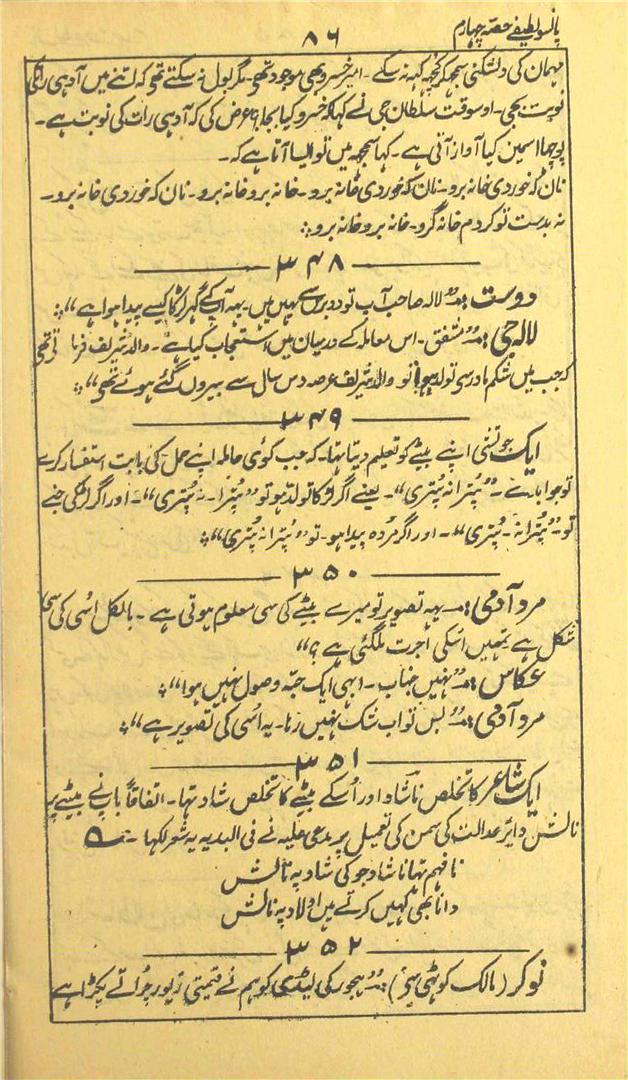 پانسو لطیفے حصہ چہارم
۸۶
مہمان کی دلشکنی سمجھ کر کچھ کہہ نہ سکے۔ امیر خسرو بھی موجود تھے مگر بول نہ سکتے تھے کہ اتنے میں آدہی رات کی
نوبت بجی۔ اوسوقت سلطان جی نے کہا کہ خسرو کیا بجا؟ عرض کی کہ آدہی رات کی نوبت ہے۔
پوچھا اسمین کیا آواز آتی ہے۔ کہا سمجھ میں تو ایسا آتا ہے کہ۔
نان کہ خوردی خانہ برو۔ نان کہ خوردی خانہ برو۔ خانہ برو خانہ برو۔ نان کہ خوردی خانہ برو۔
نہ بدست تو کردم خانہ گرو۔ خانہ برو خانہ برو؞
۳۴۸
دوست:۔ "لالہ صاحب آپ تو دو برس سے یہیں ہیں۔ یہہ آپ کے گہر لڑکا کیسے پیدا ہوا ہے"؞
لالہ جی:۔ "مشفق۔ اس معاملہ کے درمیان میں استعجاب کیا ہے۔ والد شریف فرماتی تھی
کہ جب میں شکم مادر سی تولد ہوا تو والد شریف عرصہ دس سال سے بیروں گئے ہوئے تھے"؞
۳۴۹
ایک جوتشی اپنے بیٹے کو تعلیم دیتا تہا۔ کہ جب کوئی حاملہ اپنے حمل کی بابت استفسار کرے
تو جواباً دے۔ "پُترا نہ پُتری"۔ یعنے اگر لڑکا تولد ہو تو "پُترا۔ نہ پُتری"۔ اور اگر لڑکی جنے
تو۔ "پُترا نہ۔ پُتری"۔ اور اگر مُردہ پیدا ہو۔ تو "پُترا نہ پُتری"؞
۳۵۰
مرد آدمی:۔ یہہ تصویر تو میرے بیٹے کی سی معلوم ہوتی ہے۔ بالکل اُسی کی سی
شکل ہے تمھیں اسکی اجرت ملگئی ہے؟"
عکاس:۔ "نہیں جناب۔ ابہی ایک حبّہ وصول نہیں ہوا"؞
مرد آدمی:۔ "بس تو اب شک نہیں رہا۔ یہ اُسی کی تصویر ہے"؞
۳۵۱
ایک شاعر کا تخلص ناشاد اور اُسکے بیٹے کا تخلص شاد تہا۔ اتفاقاً باپ نے بیٹے پر
نالش دایر عدالت کی سمن کی تعمیل پر مدعی علیہ نے فی البدیہہ یہ شعر لکھا۔
نافہم تہا ناشاد جو کی شاد پہ نالش
دانا بھی کہیں کرتے ہیں اولاد پہ نالش
۳۵۲
نوکر (مالک کوٹھی سے):۔ "ہجور کی لیڈی کو ہم نے قیمتی زیور چُراتے پکڑا ہے